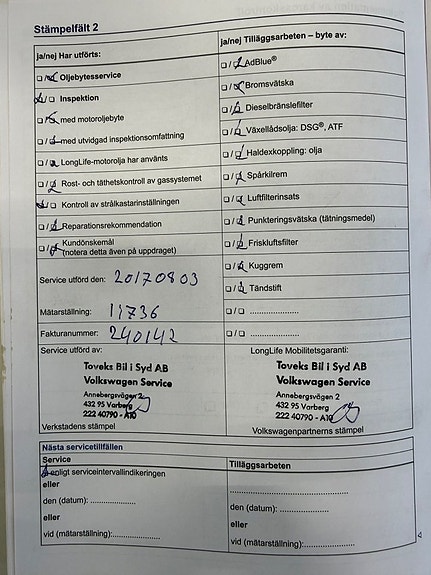 Stämpelfält 2
ja/nej Har utförts:
ja/nej Tilläggsarbeten – byte av:
□ / □ Oljebytesservice
□ / □ AdBlue®
□ / □ Inspektion
□ / □ Bromsvätska
□ / □ med motoroljebyte
□ / □ Dieselbränslefilter
□ / □ med utvidgad inspektionsomfattning
□ / □ Växellådsolja: DSG®, ATF
□ / □ LongLife-motorolja har använts
□ / □ Haldexkoppling: olja
□ / □ Rost- och täthetskontroll av gassystemet
□ / □ Spårkilrem
□ / □ Kontroll av strålkastarinställningen
□ / □ Luftfilterinsats
□ / □ Reparationsrekommendation
□ / □ Punkteringsvätska (tätningsmedel)
□ / □ Kundönskemål
(notera detta även på uppdraget)
□ / □ Friskluftsfilter
□ / □ Kuggrem
Service utförd den: 20170803
□ / □ Tändstift
Mätarställning: 11736
□ / □ .....................
Fakturanummer: 240142
□ / □ .....................
Service utförd av:
LongLife Mobilitetsgaranti:
Toveks Bil i Syd AB
Volkswagen Service
Annebergsvägen 2
432 95 Varberg
222 40790 - A10
Verkstadens stämpel
Toveks Bil i Syd AB
Volkswagen Service
Annebergsvägen 2
432 95 Varberg
222 40790 - A10
Volkswagenpartnerns stämpel
Nästa servicetillfällen
Service
Tilläggsarbeten
enligt serviceintervallindikeringen
eller
den (datum): ...................
eller
vid (mätarställning):...................
..........................................
den (datum): ...................
eller
vid (mätarställning):...................